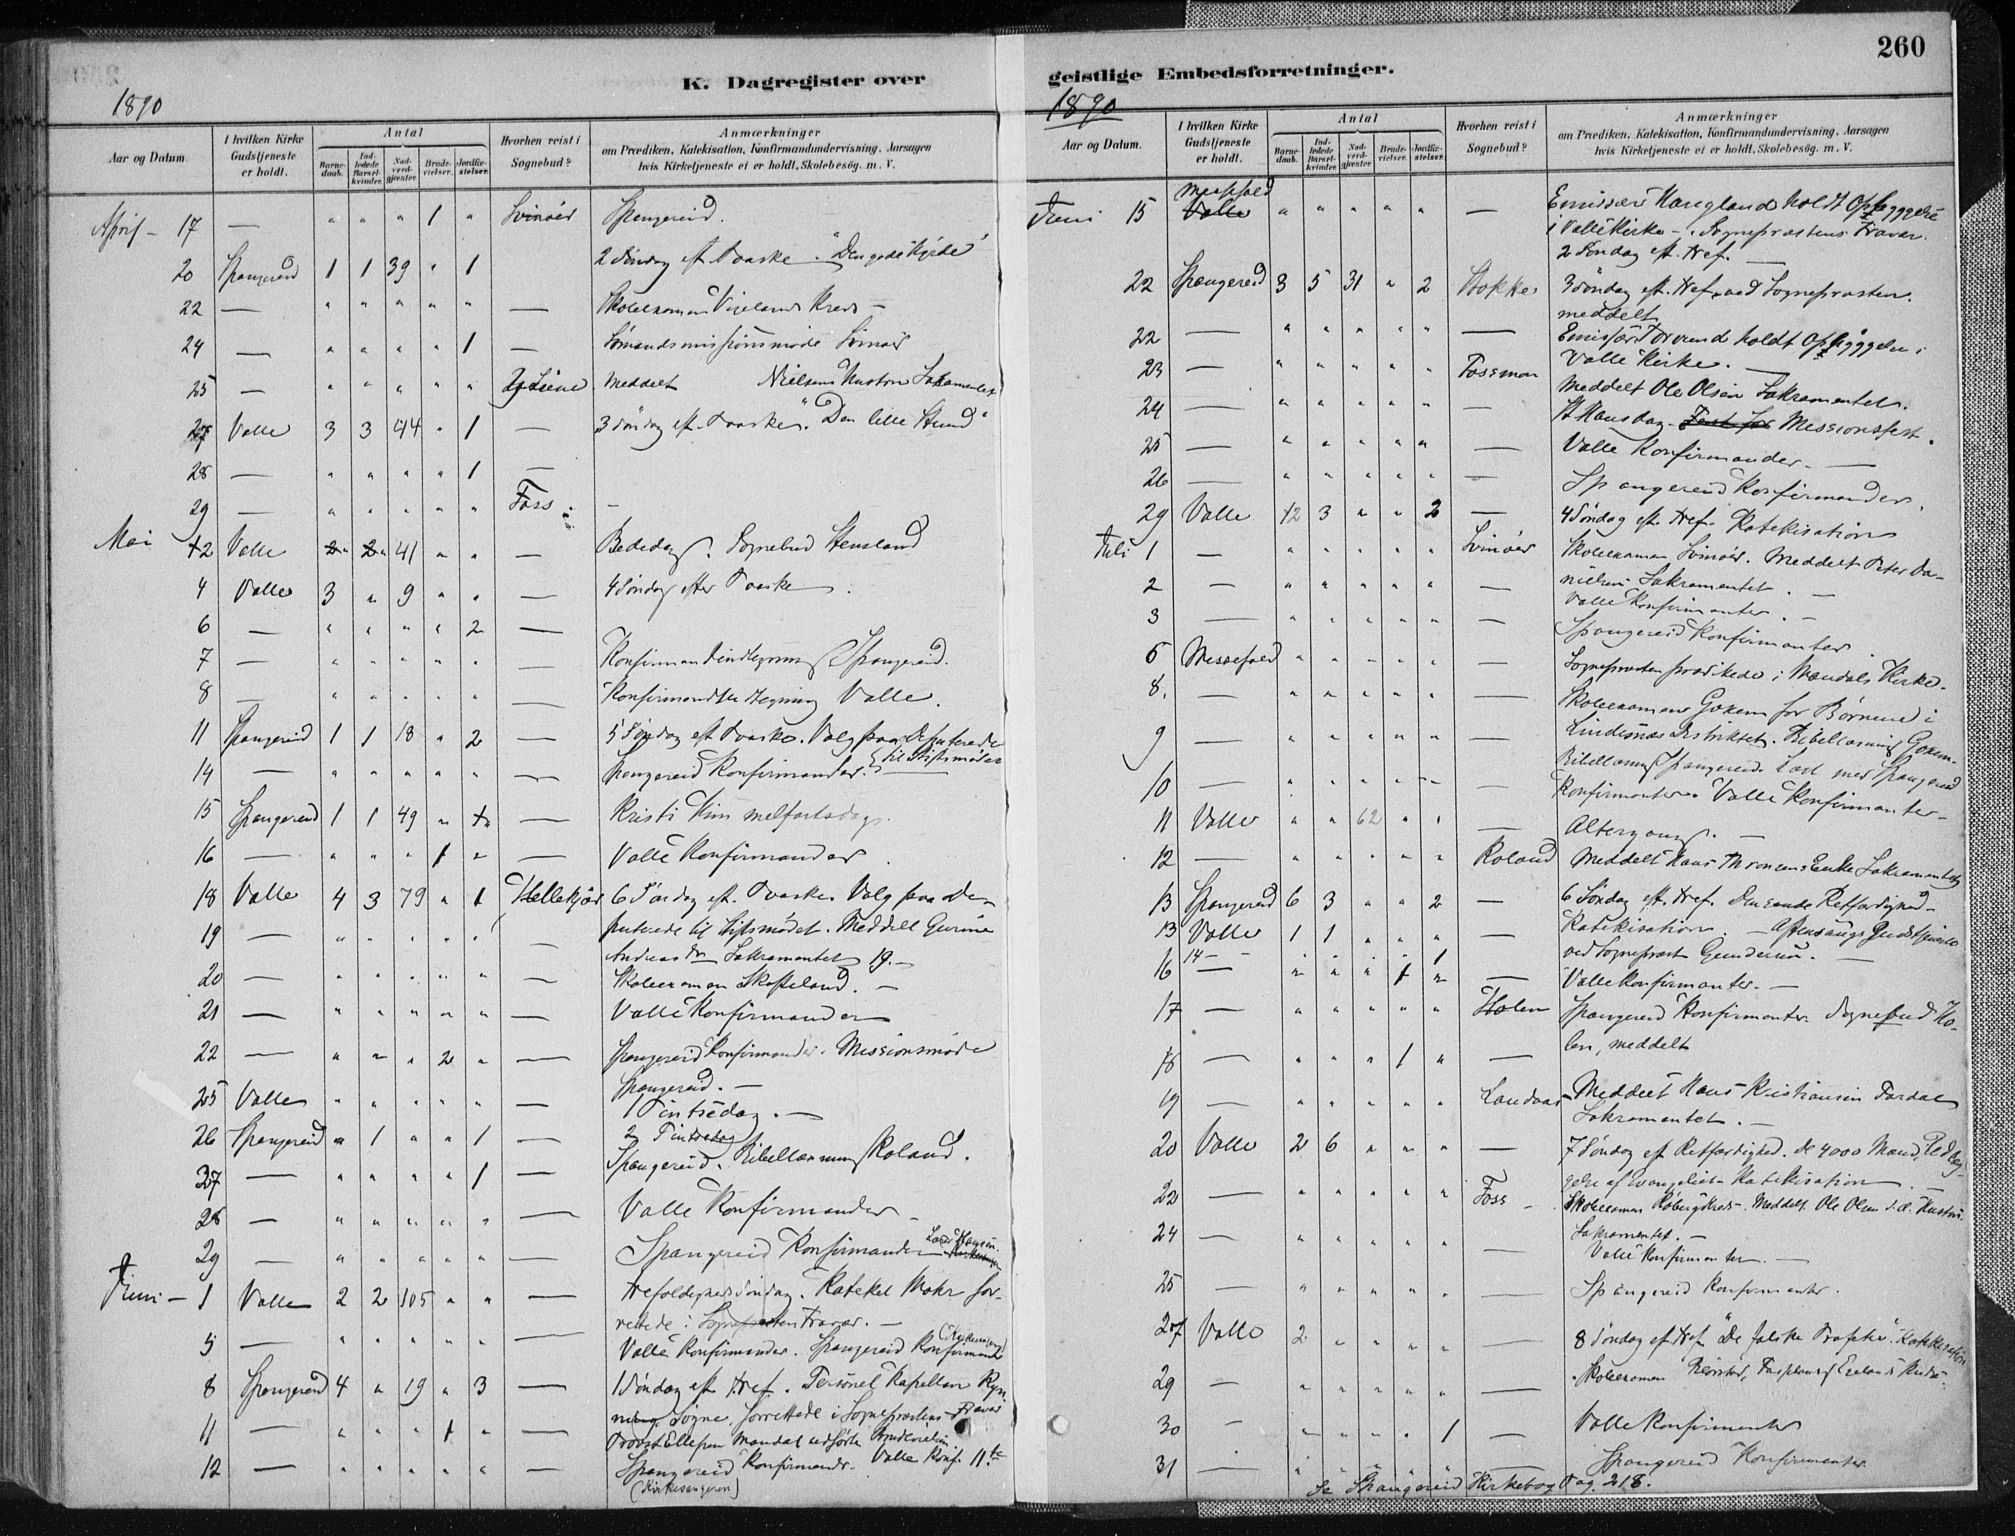 260
K. Dagregister over
1890
Aar og Datum. | I hvilken Kirke Gudstjeneste er holdt. | Antal | Barne-daab. | Ind-ledede Barsel-kvinder. | Nad-verd-gjæster. | Brude-vielser. | Jordfæ-stelser. | Hvorhen reist i Sognebud? | Anmærkninger om Prædiken, Katekisation, Konfirmandundervisning, Aarsagen hvis Kirketjeneste ei er holdt, Skolebesøg. m. V.
April - 17 — " " " 1 " Svinøer Spangereid.
20 Spangereid 1 1 39 " 1 2 Søndag eft. Paaske. "Den gode Hyrde"
22 — " " " " " — Skoleexamen Vigelands Kreds -
24 — " " " " 1 — Sømandsmissionsmøde Svinøer
25 — " " " " " Meddelt Nielsens Hustru Sakramentet
27 Valle 3 3 44 " 1 — 3 Søndag eft. Paaske. "Den lille Stund"
28 — " " " " 1 —
29 — " " " " " Foss -
Mai 2 Valle " " 41 " " — Bededag. Sognebud Stensland
4 Valle 3 " 9 " " — 4 Søndag efter Paaske.
6 — " " " " 2 —
7 — " " " " " Konfirmandindtegning Spangereid.
8 — " " " " " — Konfirmandindtegning Valle.
11 Spangereid 1 1 18 " 2 — 5 Søndag eft. Paaske. Valg paa Deputerede
til Stiftsmødet
14 — " " " " " — Spangereid Konfirmander.
15 Spangereid 1 1 49 " " — Kristi Himmelfartsdag.
16 — " " " 1 " — Valle Konfirmander.
18 Valle 4 3 79 " 1 Hellekjær 6 Søndag eft. Paaske. Valg paa De-
puterede til Stiftsmødet. Meddelt Gurine
19 — " " " " " — Andreasdtr Sakramentet 19. -
20 — " " " " " — Skoleexamen Skofteland. -
21 — " " " " " — Valle Konfirmander
22 — " " " 2 " — Spangereid Konfirmander. Missionsmøde
Spangereid. -
25 Valle " " " " " — 1 Pintsedag. -
26 Spangereid " 1 " " 1 — 2 Pintsedag
27 — " " " " 1 Spangereid. Bibellæsning Roland.
28 — " " " " " — Valle Konfirmander
29 — " " " " " — Spangereid Konfirmander
Juni - 1 Valle 2 2 105 " " — Trefoldighedssøndag. Kateket Mohr for-
rettede i Sognepræstens Fravær. -
5 — " " " " " — Valle Konfirmander. Spangereid Konfirmander
8 Spangereid 4 " 19 " 3 — 1 Søndag eft. Tref. Personel Kapellan Ryn
ning Søgne forrettede i Sognepræstens Fravær
11 — " " " 1 " Provst Ellefsen Mandal udførte Brudevielsen
12 — " " " " " — Spangereid Konfirmandr. Valle Konf. 11te
(Kirkesangeren)
geistlige Embedsforretninger.
1890
Aar og Datum. | I hvilken Kirke Gudstjeneste er holdt. | Antal | Barne-daab. | Ind-ledede Barsel-kvinder. | Nad-verd-gjæster. | Brude-vielser. | Jordfæ-stelser. | Hvorhen reist i Sognebud? | Anmærkninger om Prædiken, Katekisation, Konfirmandundervisning, Aarsagen hvis Kirketjeneste ei er holdt, Skolebesøg. m. V.
Juni 15 Messefald Valle " " " " " — Emissær Haugland holdt Opbyggelse
i Valle Kirke - i Sognepræstens Fravær.
2 Søndag eft. Tref. —
22 Spangereid 3 5 31 " 2 Stokke 3 Søndag eft. Tref. ved Sognepræsten.
meddelt
22 — " " " " " — Emissær Torvund holdt Opbyggelse i
Valle Kirke. —
23 — " " " " " Fossmon Meddelt Ole Olsen Sakramentet.
24 — " " " " " — St Hansdag - Missionsfest.
25 — " " " " " — Valle Konfirmander. —
26 — " " " " " — Spangereid Konfirmander.
29 Valle 12 3 " " 2 — 4 Søndag eft. Tref. Katekisation
Juli 1 — " " " " " Svinøer Skoleexamen Svinøer. Meddelt Peter Da-
nielsen Sakramentet. —
2 — " " " " " — Valle Konfirmanter. —
3 — " " " " " — Spangereid Konfirmanter.
6 Messefald " " " " " — Sognepræsten prædikede i Mandals Kirke.
8. — " " " " " — Skoleexamen Goxem for Børnene i
Lindesnæs Distriktet. Bibellæsning Goxem.
9 — " " " " " — Bibellæsning Spangereid. Læst med Spangereid
10 — " " " " " — Konfirmanter. Valle Konfirmanter -
11 Valle " " 62 " " — Altergang. —
12 — " " " " " Roland Meddelt Hans Thronsens Enke Sakramentet
13 Spangereid 6 3 " " 2 — 6 Søndag eft. Tref. Den sande Retfærdighed -
Katekisation. - Aftensangs Gudstjeneste
13 Valle 1 1 " " " — ved Sognepræst Gundersen. —
14 - " " " " 1
16 — " " " 1 " — Valle Konfirmanter. —
17 — " " " " " Holen Spangereid Konfirmanter Sognebud Ho-
len, meddelt
18 — " " " 1 " —
19 — " " " " " Landaas Meddelt Hans Kristiansen Fardal
Sakramentet. —
20 Valle 2 6 " " " — 7 Søndag eft. Retfærdighed. De 4000 Mand. Udlæg-
gelse af Evangeliet. Katekisation. —
22 — " " " " " Foss - Skoleexamen Kreds. Meddelt Ole Olsen Hustru
Sakramentet. —
24 — " " " " " — Valle Konfirmanter. —
25 — " " " " " — Spangereid Konfirmanter.
27 Valle 2 " " " " 8 Søndag eft. Tref. "De falske Profeter". Katekisation
29 — " " " " " — Skoleexamen
30 — " " " " 1 — Valle Konfirmanter
31 — " " " " " — Spangereid Konfirmanter
Se Spangereid Kirkebog Pag. 218.